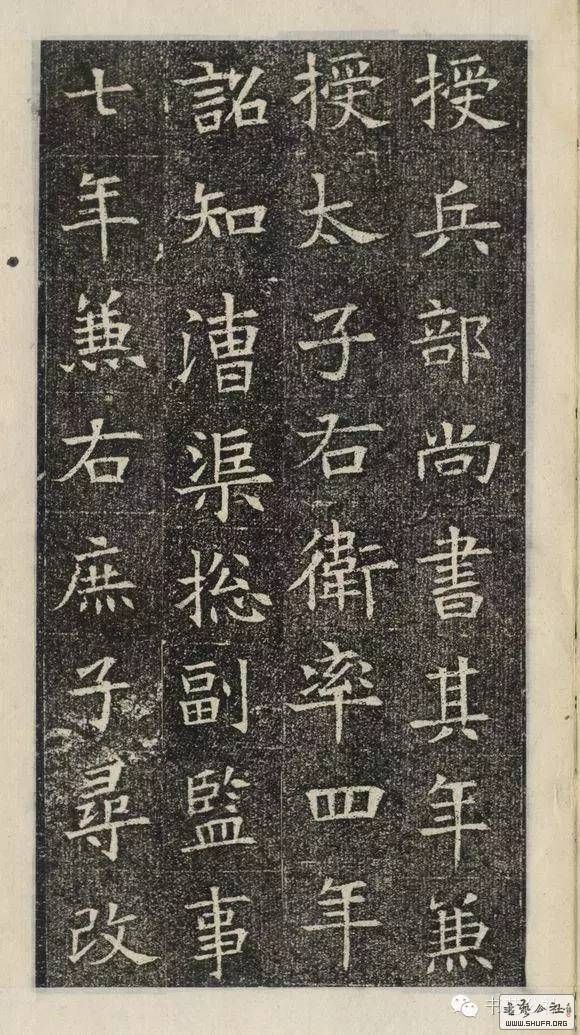 授兵部尚書其年兼
授太子右衛率四年
詔知漕渠揔副監事
七年兼右庶子尋改
WWW.SHUFA.ORG